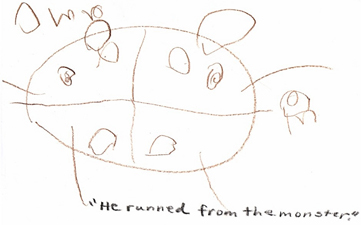 "He runned from the monster."